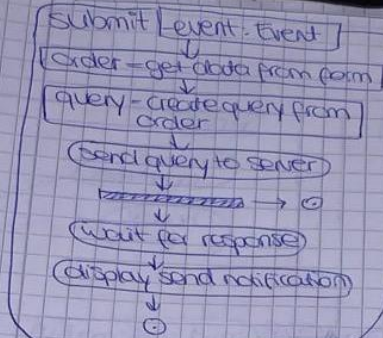 submit event: Event
order = get data from form
query = create query from
order
send query to server
wait for response
display send notification